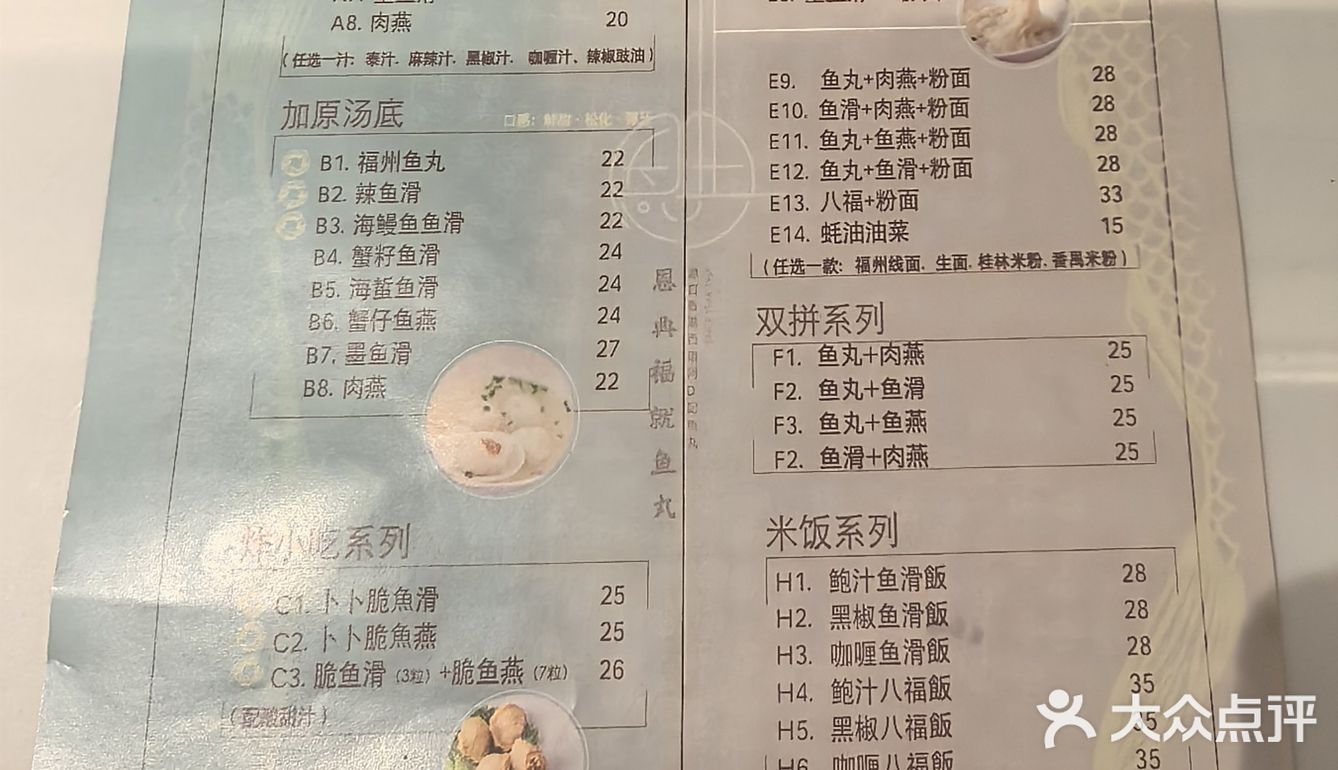 A8. 肉燕 20
(任选一汁: 泰汁. 麻辣汁. 黑椒汁. 咖喱汁、辣椒豉油)
加原汤底
口感: 鲜甜·松化·弹牙
B1. 福州鱼丸 22
B2. 辣鱼滑 22
B3. 海鳗鱼鱼滑 22
B4. 蟹籽鱼滑 24
B5. 海蜇鱼滑 24
B6. 蟹仔鱼燕 24
B7. 墨鱼滑 27
B8. 肉燕 22
炸小吃系列
C1. 卜卜脆魚滑 25
C2. 卜卜脆魚燕 25
C3. 脆鱼滑 (3粒) +脆鱼燕 (7粒) 26
(配酸甜汁)
恩典福就鱼丸
E9. 鱼丸+肉燕+粉面 28
E10. 鱼滑+肉燕+粉面 28
E11. 鱼丸+鱼燕+粉面 28
E12. 鱼丸+鱼滑+粉面 28
E13. 八福+粉面 33
E14. 蚝油油菜 15
(任选一款: 福州线面. 生面. 桂林米粉. 番禺米粉)
双拼系列
F1. 鱼丸+肉燕 25
F2. 鱼丸+鱼滑 25
F3. 鱼丸+鱼燕 25
F2. 鱼滑+肉燕 25
米饭系列
H1. 鲍汁鱼滑飯 28
H2. 黑椒鱼滑飯 28
H3. 咖喱鱼滑飯 28
H4. 鲍汁八福飯 35
H5. 黑椒八福飯 35
H6. 咖喱八福飯 35
大众点评